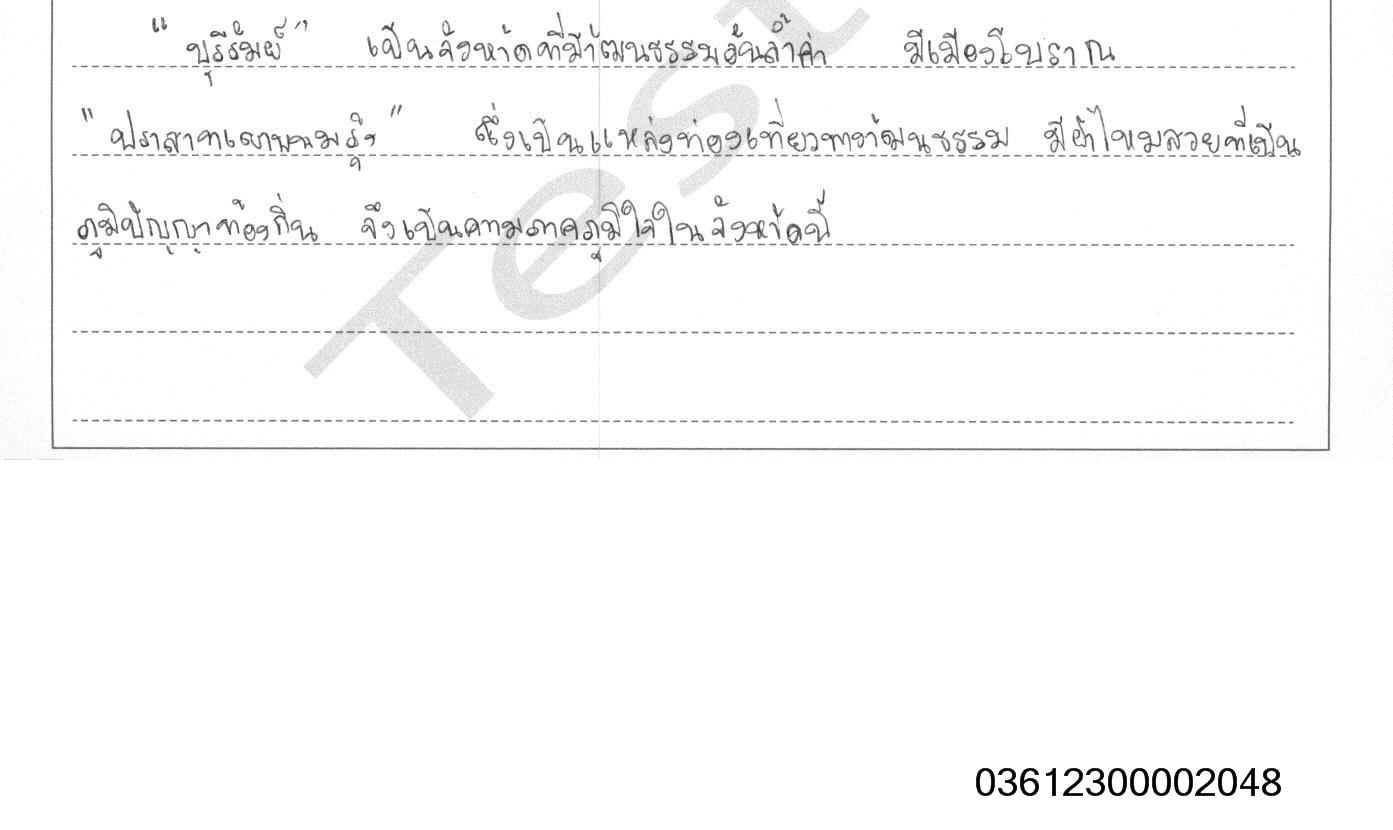 “ บุรีรัมย์ ” เป็นจังหวัดที่มีวัฒนธรรมอันล้ำค่า มีเมืองโบราณ
“ ปราสาทเขาพนมรุ้ง ” ซึ่งเป็นแหล่งท่องเที่ยวทางวัฒนธรรม มีผ้าไหมสวยที่เป็น
ภูมิปัญญาท้องถิ่น จึงเป็นความภาคภูมิใจในจังหวัดนี้
Test
03612300002048